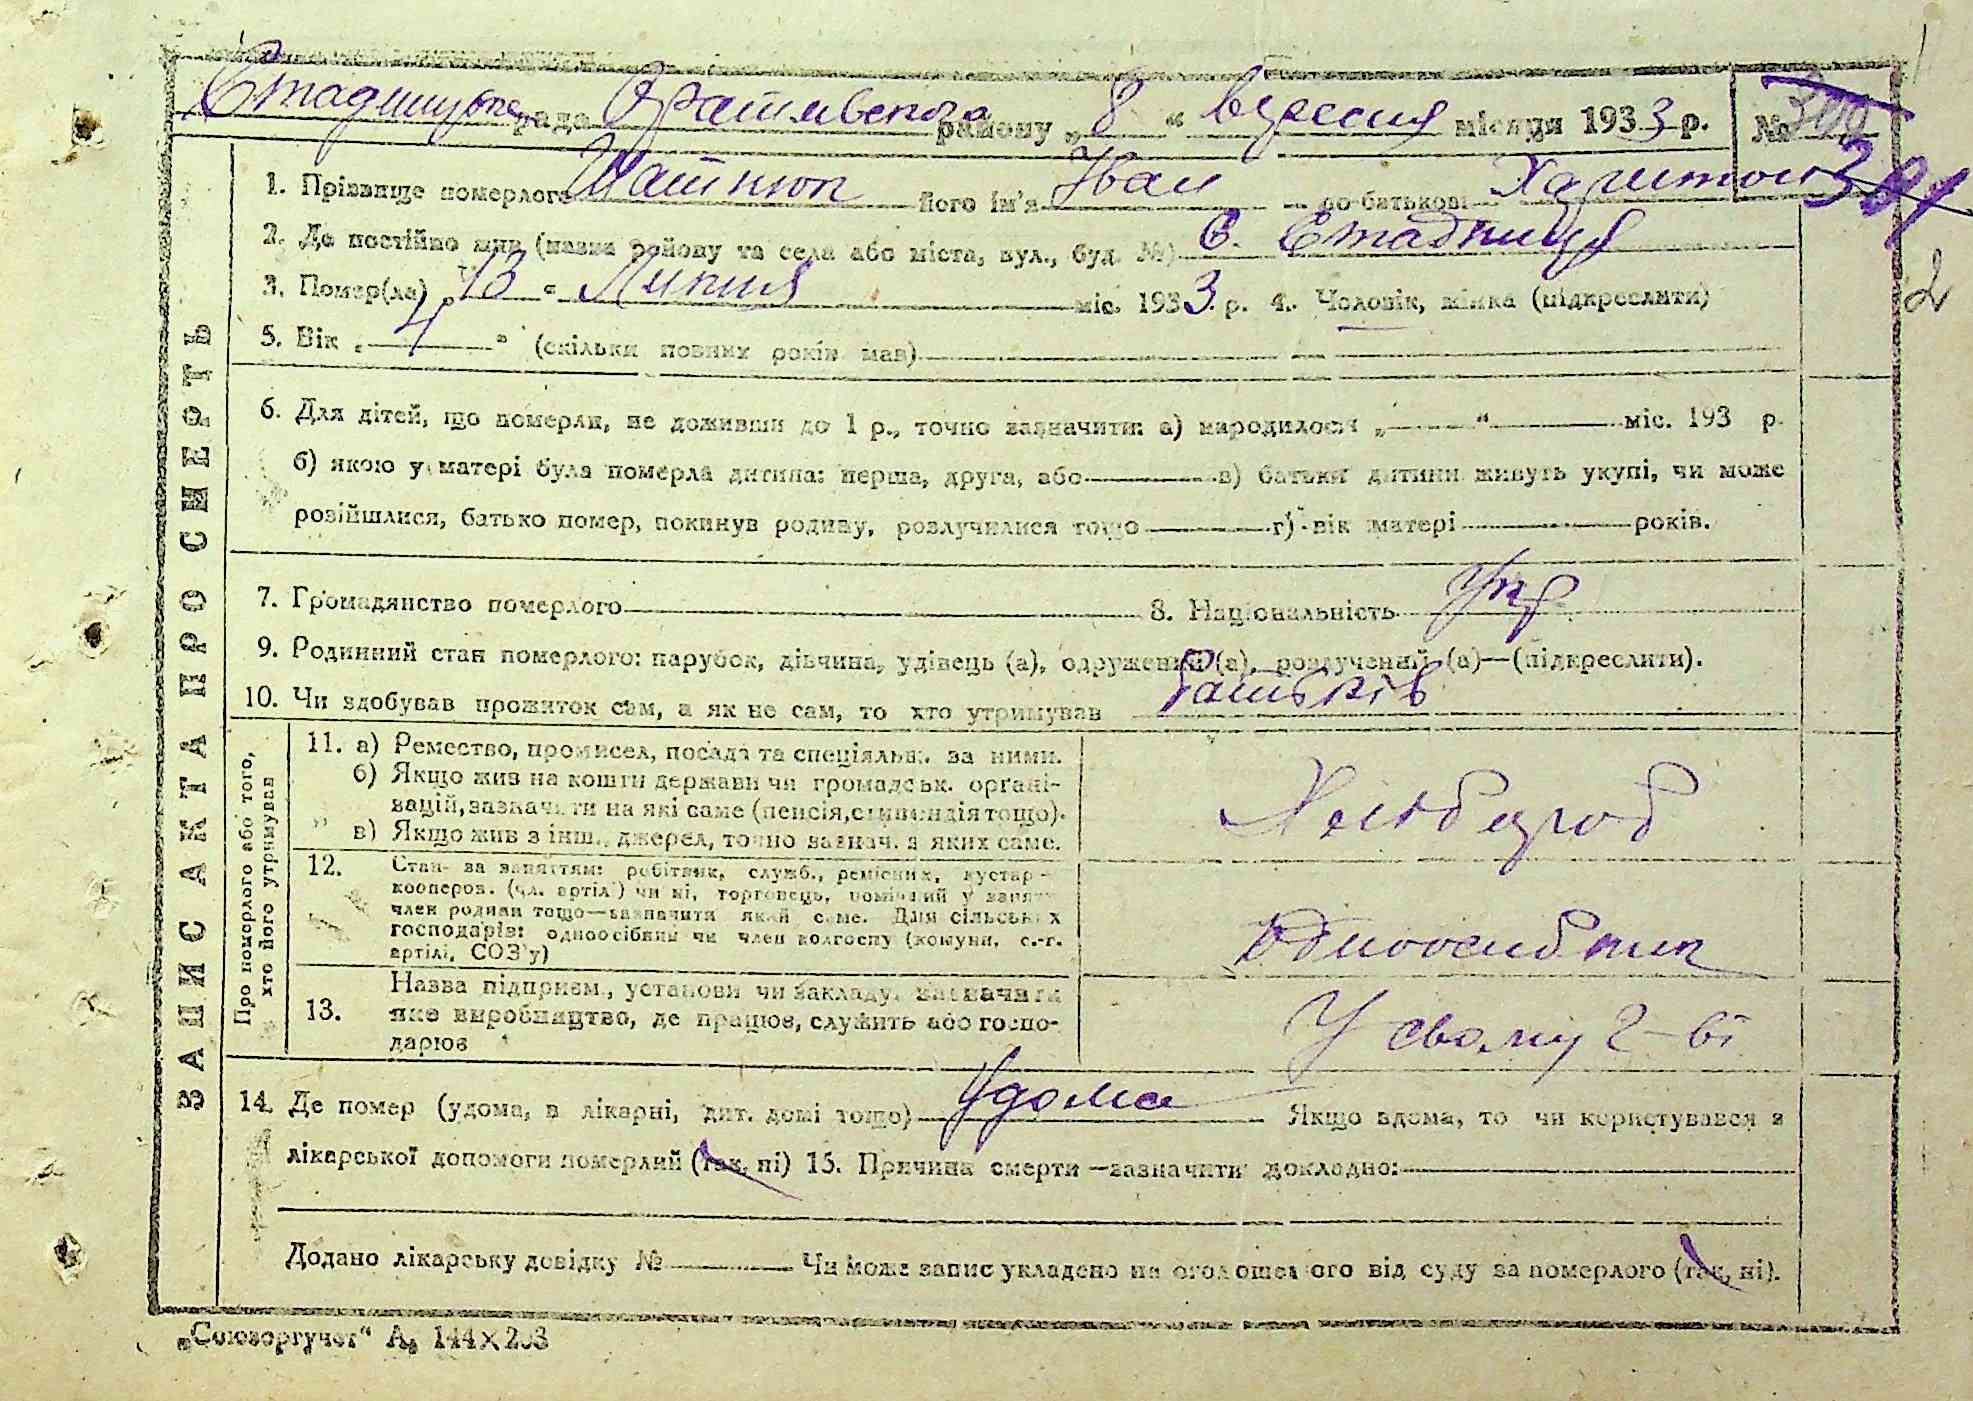 Стадницька рада районy „8“ Вересня місяця 1933 р. №
301
1. Прізвище померлого його ім'я Іван по-батькові Харитон
2. Де постійно жив (назва району та села або міста, вул., буд. №) с. Стадниця
2
3. Помер(ла) „13“ Липня міс. 1933 р. 4. Чоловік, жінка (підкреслити)
5. Вік „4“ (скільки повних років мав)
6. Для дітей, що померли, не доживши до 1 р., точно зазначити: а) народилося „ “ міс. 193 р.
б) якою у матері була померла дитина: перша, друга, або в) батьки дитини живуть укупі, чи може
розійшлися, батько помер, покинув родину, розлучилися тощо г) вік матері років.
7. Громадянство померлого 8. Національність Укр
9. Родинний стан померлого: парубок, дівчина, удівець (а), одружений (а), розлучений (а)—(підкреслити).
10. Чи здобував прожиток сам, а як не сам, то хто утримував батьків
ЗАПИС АКТА ПРО СМЕРТЬ
Про померлого або того, хто його утримував
11. а) Ремество, промисел, посада та спеціяльн. за ними.
б) Якщо жив на кошти держави чи громадськ. органі-
зацій, зазначити на які саме (пенсія, стипендія тощо).
в) Якщо жив з інш. джерел, точно зазнач. з яких саме.
Хлібороб
12. Стан за заняттям: робітник, служб., ремісник, кустар-
кооперов. (чл. артілі) чи ні, торговець,
член родини тощо—зазначити який саме. Для сільських
господарів: одноосібник чи член колгоспу (комуни, с.-г.
артілі, СОЗ'у)
Одноосибник
13. Назва підприєм., установи чи закладу, зазначити
яке виробництво, де працює, служить або госпо-
дарює
У свому г-ві
14. Де помер (удома, в лікарні, дит. домі тощо) Удома Якщо вдома, то чи користувався з
лікарської допомоги померлий (так, ні) 15. Причина смерти—зазначити докладно:
Додано лікарську довідку № Чи може запис укладено на оголошеного від суду за померлого (так, ні).
„Союзоргучет“ А₅ 144×203